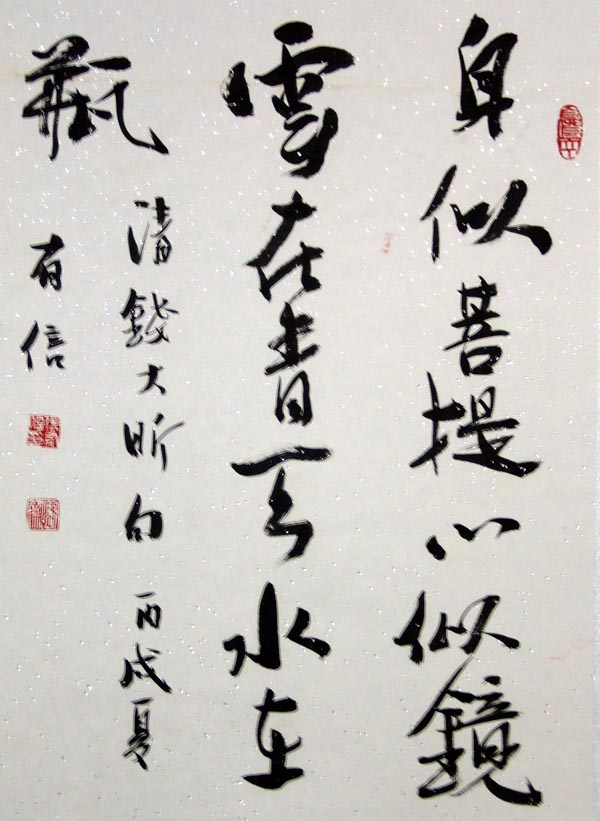 身似菩提心似鏡
雲在青天水在
瓶
清錢大昕句 丙戌夏
有信